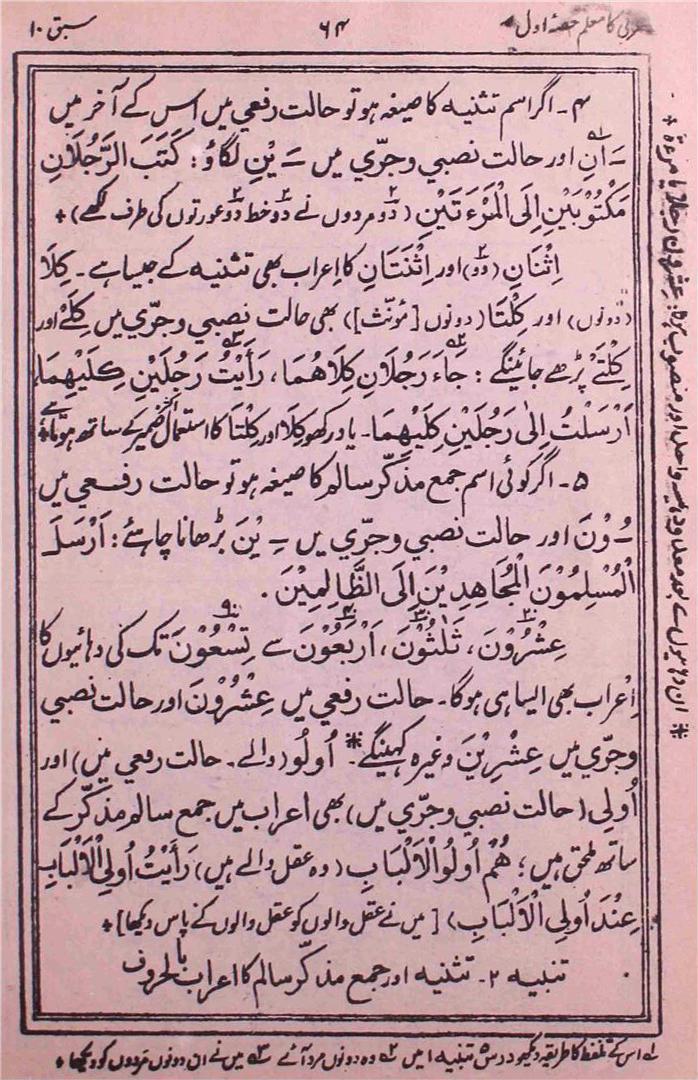 عربی کا معلم حصۂ اول
۶۴
سبق ۱۰
۴۔ اگر اسم تثنیہ کا صیغہ ہو تو حالت رفعی میں اس کے آخر میں
ـَ انِ اور حالت نصبی وجرّی میں ـَ یْنِ لگاؤ: کَتَبَ الرَّجُلَانِ
مَکْتُوْبَیْنِ اِلَی الْمَرْءَتَیْنِ (دو مردوں نے دو خط دو عورتوں کی طرف لکھے) +
اِثْنَانِ (دو) اور اِثْنَتَانِ کا اِعراب بھی تثنیہ کے جیسا ہے۔ کِلَا
(دونوں) اور کِلْتَا (دونوں [مؤنث]) بھی حالت نصبی وجرّی میں کِلَےْ اور
کِلْتَےْ پڑھے جائینگے: جَاءَ رَجُلَانِ کِلَاهُمَا، رَأَیْتُ رَجُلَیْنِ کِلَیْهِمَا،
اَرْسَلْتُ اِلٰی رَجُلَیْنِ کِلَیْهِمَا۔ یاد رکھو کِلَا اور کِلْتَا کا استعمال ضمیر کے ساتھ ہوتا ہے +
۵۔ اگر کوئی اسم جمع مذکّر سالم کا صیغہ ہو تو حالت رفعی میں
ـُ وْنَ اور حالت نصبی وجرّی میں ـِ یْنَ بڑھانا چاہئے: اَرْسَلَ
الْمُسْلِمُوْنَ الْمُجَاهِدِیْنَ اِلَی الظَّالِمِیْنَ.
عِشْرُوْنَ ۲۰، ثَلٰثُوْنَ ۳۰، اَرْبَعُوْنَ ۴۰ سے تِسْعُوْنَ ۹۰ تک کی دہائیوں کا
اِعراب بھی ایسا ہی ہوگا۔ حالت رفعی میں عِشْرُوْنَ اور حالت نصبی
وجرّی میں عِشْرِیْنَ وغیرہ کہینگے *۔ اُولُو (والے۔ حالت رفعی میں) اور
اُولِی (حالت نصبی وجرّی میں) بھی اعراب میں جمع سالم مذکّر کے
ساتھ ملحق ہیں؛ هُمْ اُولُو الْاَلْبَابِ (وہ عقل والے ہیں) رَأَیْتُ اُولِی الْاَلْبَابِ
عِنْدَ اُولِی الْاَلْبَابِ) [میں نے عقل والوں کو عقل والوں کے پاس دیکھا] +
تنبیہ ۲۔ تثنیہ اور جمع مذکّر سالم کا اعراب بالحروف
لے اس کے تلفظ کا طریقہ دیکھو درس ۵ تنبیہ ۱ میں ۲ے وہ دونوں مرد آئے ۳ے میں نے ان دونوں مردوں کو دیکھا +
* ان دہائیوں کے بعد معدود ہمیشہ واحد اور منصوب ہوگا: عِشْرُوْنَ رَجُلًا یا مرءة +